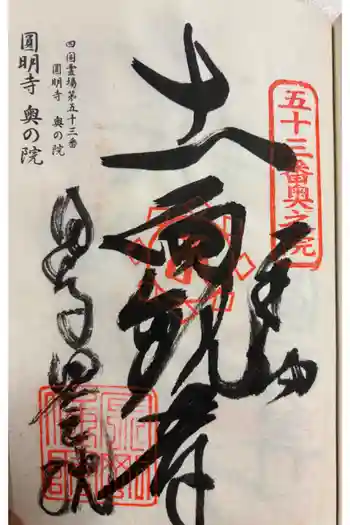 五十三番奥之院
奉納
十一面観音
四国霊場第五十三番
圓明寺 奥の院
圓明寺 奥の院